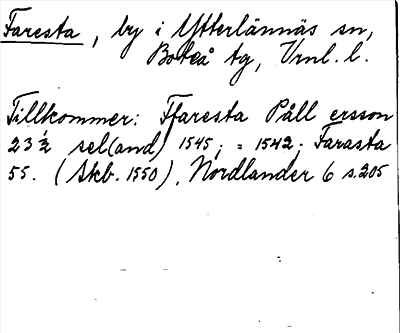 Faresta, by i Ytterlännäs sn,
Boteå tg, Vrnl. l.
Tillkommer: Ffaresta Påll ersson
23 ½ sel(and) 1545; = 1542; Farasta
55. (Skb. 1550), Nordlander 6 s.205